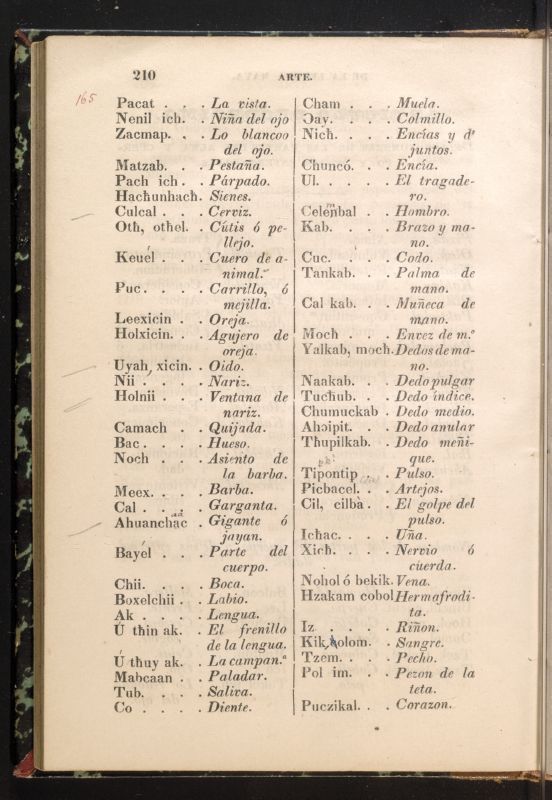 210
ARTE.
165
Pacat . . . La vista.
Nenil ich. . Niña del ojo
Zacmap. . . Lo blancoo
del ojo.
Matzab. . . Pestaña.
Pach ich. . Párpado.
Hacħunhach. Sienes.
Culcal . . . Cerviz.
Oth, othel. . Cútis ó pe-
llejo.
Keuel . . . Cuero de a-
nimal.
Puc. . . . Carrillo, ó
mejilla.
Leexicin . . Oreja.
Holxicin. . . Agujero de
oreja.
Uyah, xicin. . Oido.
Nii . . . . Nariz.
Holnii . . . Ventana de
nariz.
Camach . . Quijada.
Bac . . . . Hueso.
Noch . . . Asiento de
la barba.
Meex. . . . Barba.
Cal . . . . Garganta.
Ahuanchac . Gigante ó
jayan.
Bayel . . . Parte del
cuerpo.
Chii. . . . Boca.
Boxelchii . . Labio.
Ak . . . . Lengua.
U thin ak. . El frenillo
de la lengua.
U thuy ak. . La campan.ª
Mabcaan . . Paladar.
Tub. . . . Saliva.
Co . . . . Diente.
Cham . . . Muela.
Ɔay. . . . Colmillo.
Nicħ. . . . Encías y dᵉ
juntos.
Chuncó. . . Encía.
Ul. . . . . El tragade-
ro.
Celenbal . . Hombro.
Kab. . . . Brazo y ma-
no.
Cuc. . . . Codo.
Tankab. . . Palma de
mano.
Cal kab. . . Muñeca de
mano.
Moch . . . Envez de m.º
Yalkab, moch. Dedos de ma-
no.
Naakab. . . Dedo pulgar
Tucħub. . . Dedo índice.
Chumuckab . Dedo medio.
Ahɔipit. . . Dedo anular
Thupilkab. . Dedo meñi-
que.
Tipontip . . Pulso.
Picbacel. . . Artejos.
Cil, cilba . . El golpe del
pulso.
Icħac. . . . Uña.
Xicħ. . . . Nervio ó
cuerda.
Nohol ó bekik. Vena.
Hzakam cobol Hermafrodi-
ta.
Iz . . . . Riñon.
Kik, olom. . Sangre.
Tzem. . . . Pecho.
Pol im. . . Pezon de la
teta.
Puczikal. . . Corazon.